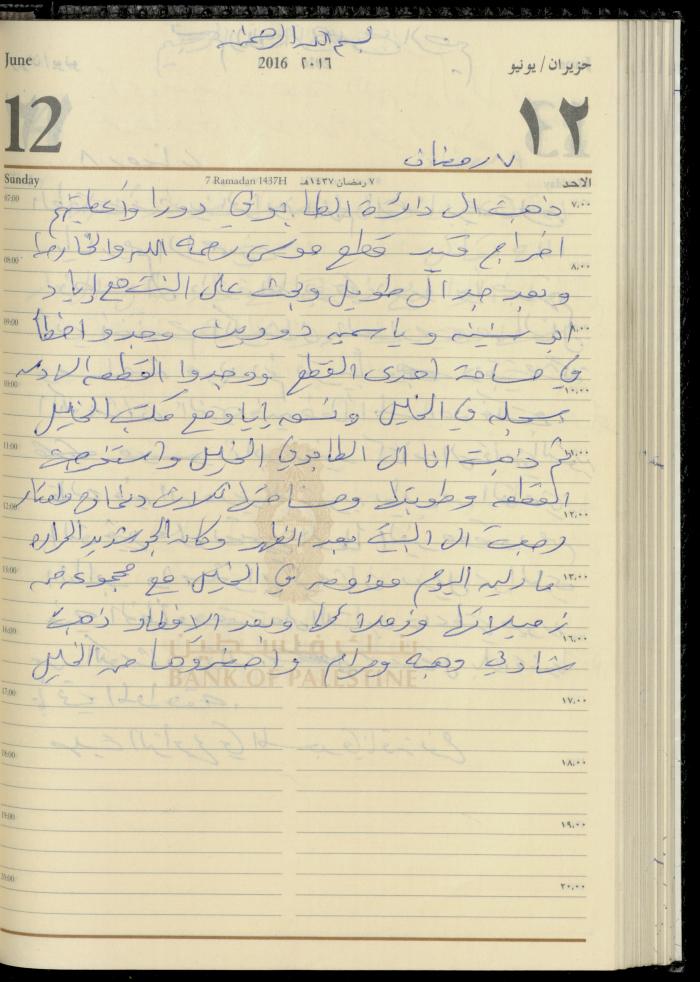 بسم الله الرحمن
June
2016 ٢٠١٦
حزيران / يونيو
12
١٢
٧ رمضان
Sunday
7 Ramadan 1437H ٧ رمضان ١٤٣٧هـ
الاحد
07:00 ذهبت الى دائرة الطابو في دورا وأعطيتهم ٧,٠٠
اخراج قيد قطع موسى رحمه الله والخارطة
08:00 ٨,٠٠
وبعد جدال طويل وبحث على النت مع إياد
09:00 ابو سنينه وياسمين دودين وجدوا خطأ ٩,٠٠
في مساحة احدى القطع ووجدوا القطعه
10:00 ١٠,٠٠
مسجله في الخليل ونسقه إياد مع مكتب الخليل
11:00 ثم ذهبت انا الى الطابو في الخليل واستخرجت ١١,٠٠
القطعه ومساحتها ثلاث دونمات
12:00 ١٢,٠٠
رجعت الى البيت بعد الظهر وكان الجو شديد الحراره
13:00 مادلين اليوم معزومه في الخليل مع مجموعه من ١٣,٠٠
زميلاتها وزملائها وبعد الافطار ذهبت
16:00 ١٦,٠٠
شادي وهبه ومرام واحضروها من الخليل
بنك فلسطين
BANK OF PALESTINE
17:00 ١٧,٠٠
18:00 ١٨,٠٠
19:00 ١٩,٠٠
20:00 ٢٠,٠٠